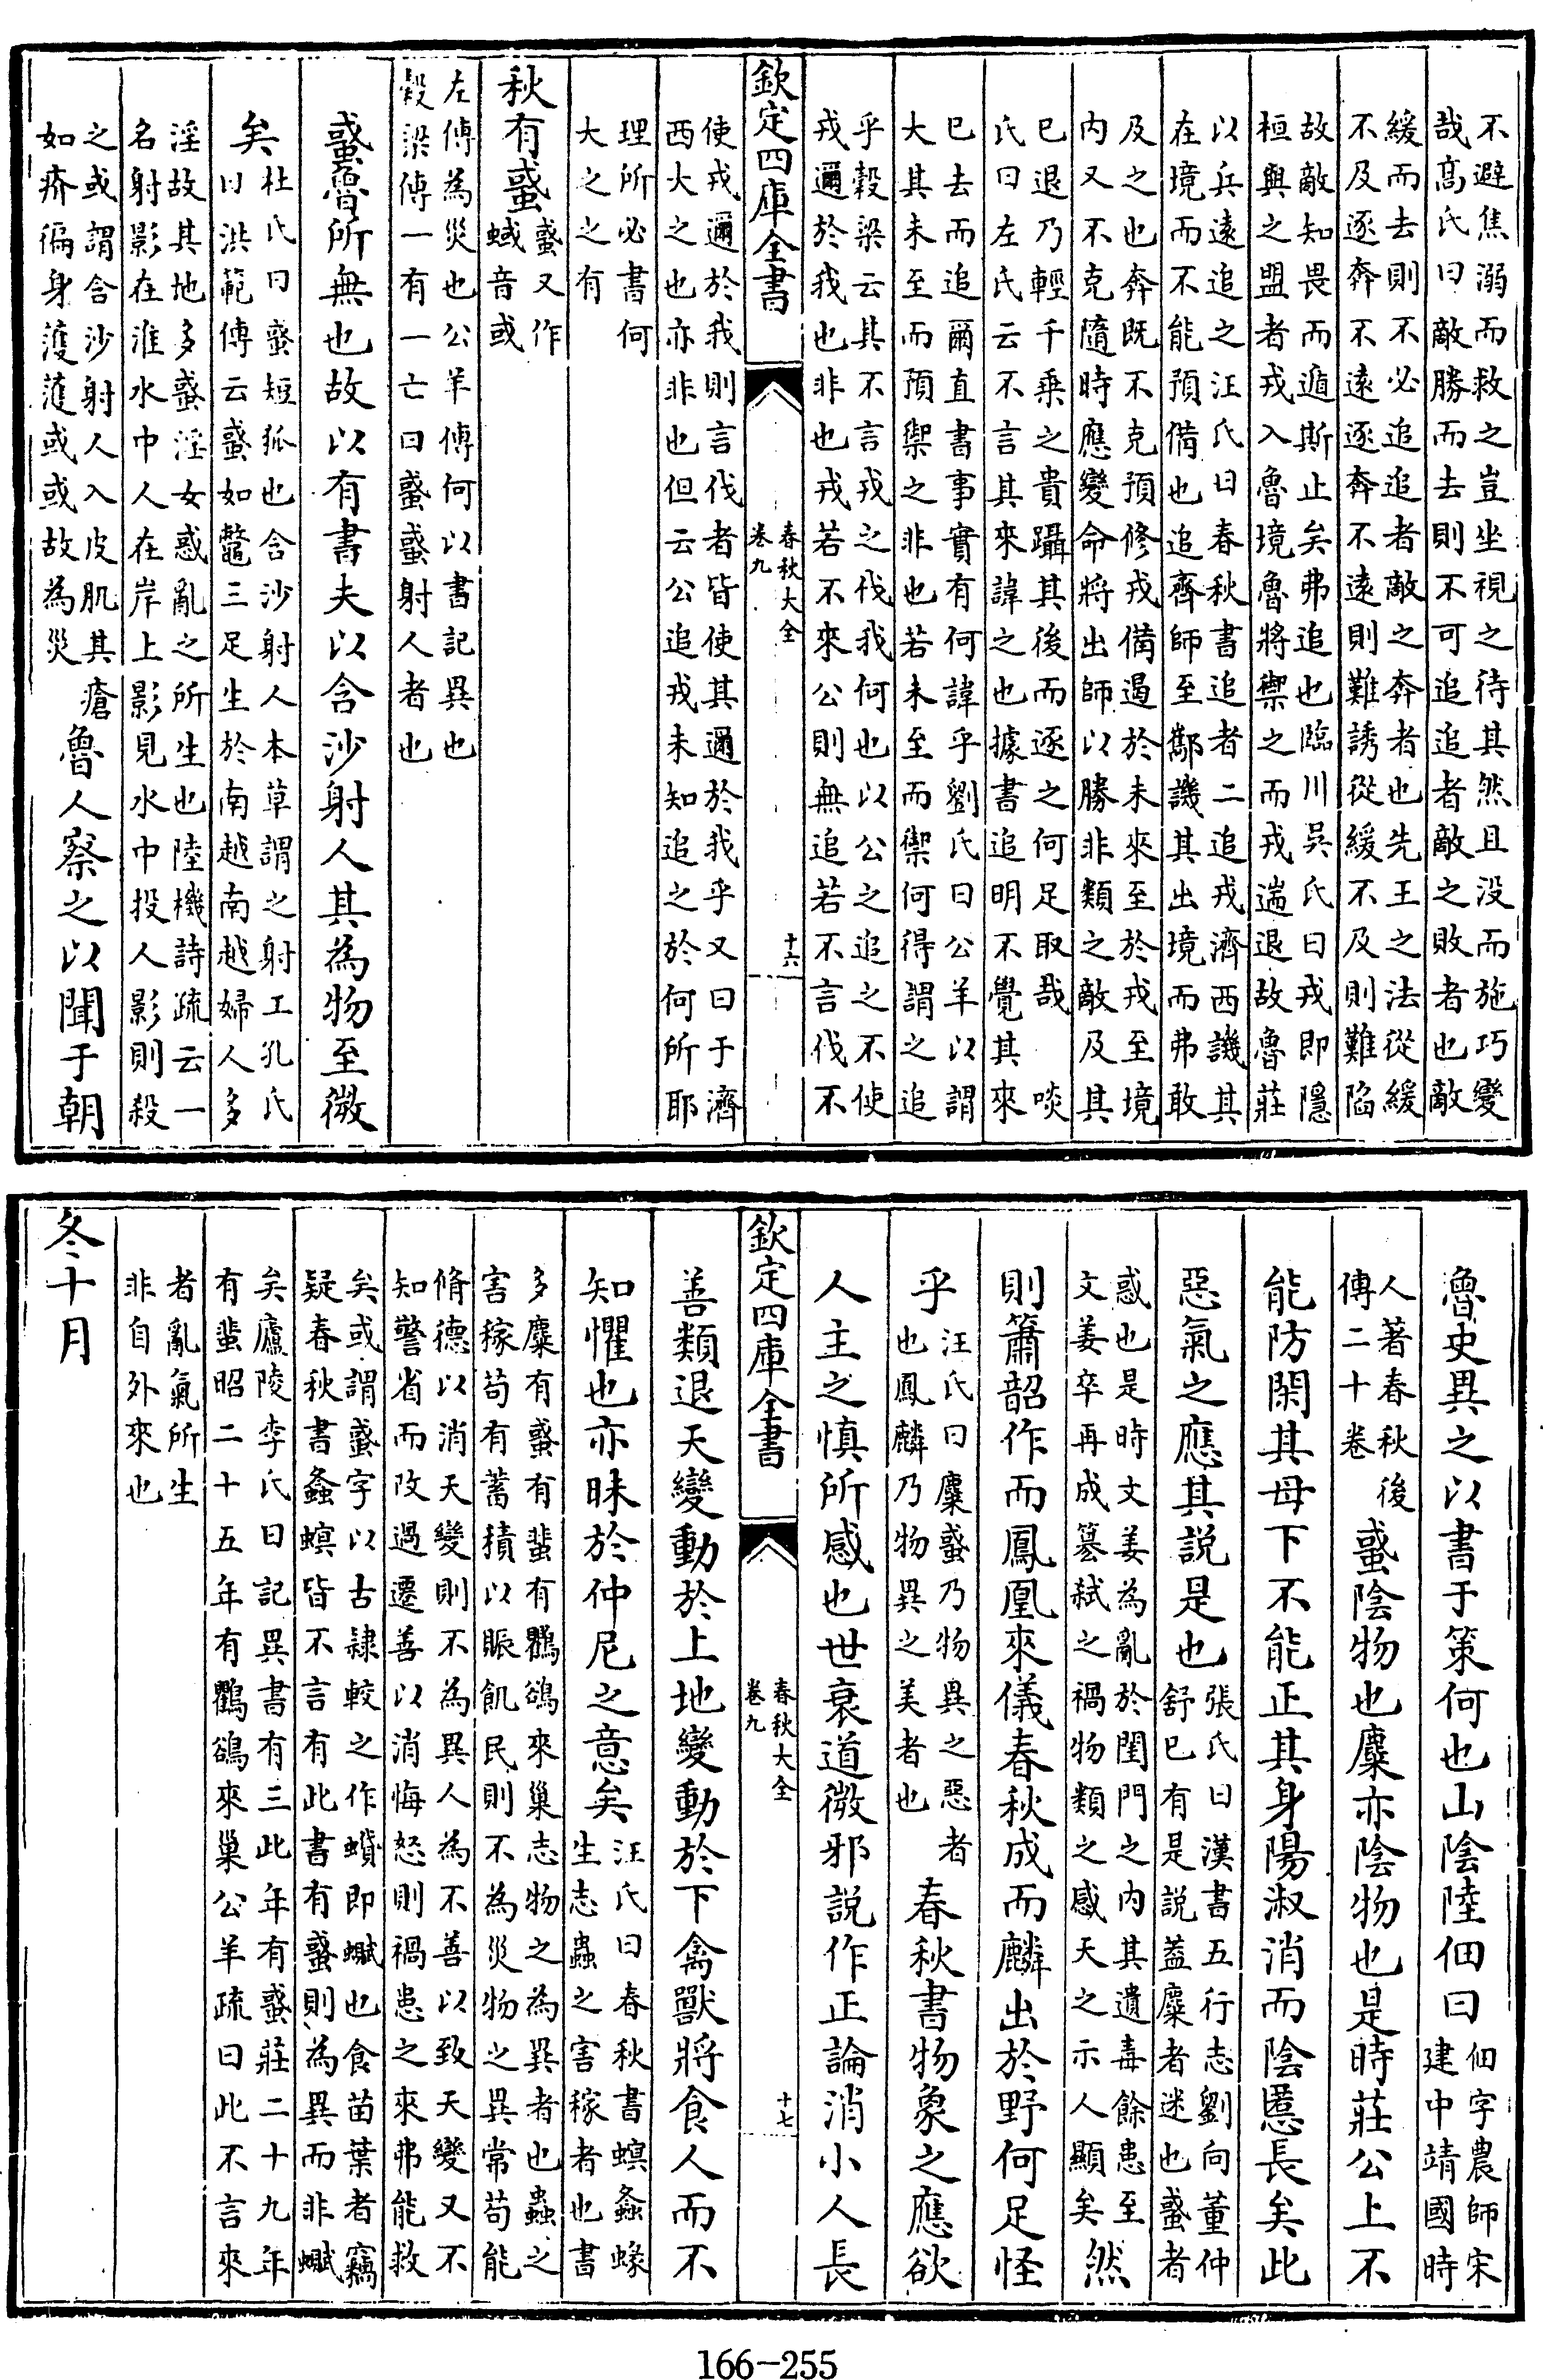 不避焦溺而救之豈坐視之待其然且没而施巧變
哉高氏曰敵勝而去則不可追追者敵之敗者也敵
緩而去則不必追追者敵之奔者也先王之法從緩
不及逐奔不遠逐奔不遠則難誘從緩不及則難陷
故敵知畏而遁斯止矣弗追也臨川吳氏曰戎即隱
桓與之盟者戎入魯境魯將禦之而戎遄退故魯莊
以兵遠追之汪氏曰春秋書追者二追戎濟西譏其
在境而不能預備也追齊師至酅譏其出境而弗敢
及之也奔既不克預修戎備遏於未來至於戎至境
内又不克隨時應變命將出師以勝非類之敵及其
已退乃輕千乘之貴躡其後而逐之何足取哉 啖
氏曰左氏云不言其來諱之也據書追明不覺其來
已去而追爾直書事實有何諱乎劉氏曰公羊以謂
大其未至而預禦之非也若未至而禦何得謂之追
乎穀梁云其不言戎之伐我何也以公之追之不使
戎邇於我也非也戎若不來公則無追若不言伐不
欽定四庫全書
春秋大全
卷九
十六
使戎邇於我則言伐者皆使其邇於我乎又曰于濟
西大之也亦非也但云公追戎未知追之於何所耶
理所必書何
大之之有
秋有蜮
蜮又作
蜮音或
左傳為災也公羊傳何以書記異也
穀梁傳一有一亡曰蜮蜮射人者也
蜮魯所無也故以有書夫以含沙射人其為物至微
矣
杜氏曰蜮短狐也含沙射人本草謂之射工孔氏
曰洪範傳云蜮如鼈三足生於南越南越婦人多
淫故其地多蜮淫女惑亂之所生也陸機詩疏云一
名射影在淮水中人在岸上影見水中投人影則殺
之或謂含沙射人入皮肌其瘡
如疥徧身濩濩或或故為災
魯人察之以聞于朝
魯史異之以書于策何也山陰陸佃曰
佃字農師宋
建中靖國時
人著春秋後
傳二十卷
蜮陰物也麋亦陰物也是時莊公上不
能防閑其母下不能正其身陽淑消而陰慝長矣此
惡氣之應其説是也
張氏曰漢書五行志劉向董仲
舒已有是説葢麋者迷也蜮者
惑也是時文姜為亂於閨門之内其遺毒餘患至
文姜卒再成簒弑之禍物類之感天之示人顯矣
然
則簫韶作而鳳凰來儀春秋成而麟出於野何足怪
乎
汪氏曰麋蜮乃物異之惡者
也鳳麟乃物異之美者也
春秋書物象之應欲
人主之慎所感也世衰道微邪説作正論消小人長
欽定四庫全書
春秋大全
卷九
十七
善類退天變動於上地變動於下禽獸將食人而不
知懼也亦昧於仲尼之意矣
汪氏曰春秋書螟螽蝝
生志蟲之害稼者也書
多麋有蜮有蜚有鸜鵒來巢志物之為異者也蟲之
害稼苟有蓄積以賑飢民則不為災物之異常苟能
脩德以消天變則不為異人為不善以致天變又不
知警省而改過遷善以消悔怒則禍患之來弗能救
矣或謂蜮字以古隷較之作蟘即蟘也食苗葉者竊
疑春秋書螽螟皆不言有此書有蜮則為異而非蟘
矣廬陵李氏曰記異書有三此年有蜮莊二十九年
有蜚昭二十五年有鸜鵒來巢公羊疏曰此不言來
者亂氣所生
非自外來也
冬十月
166-255